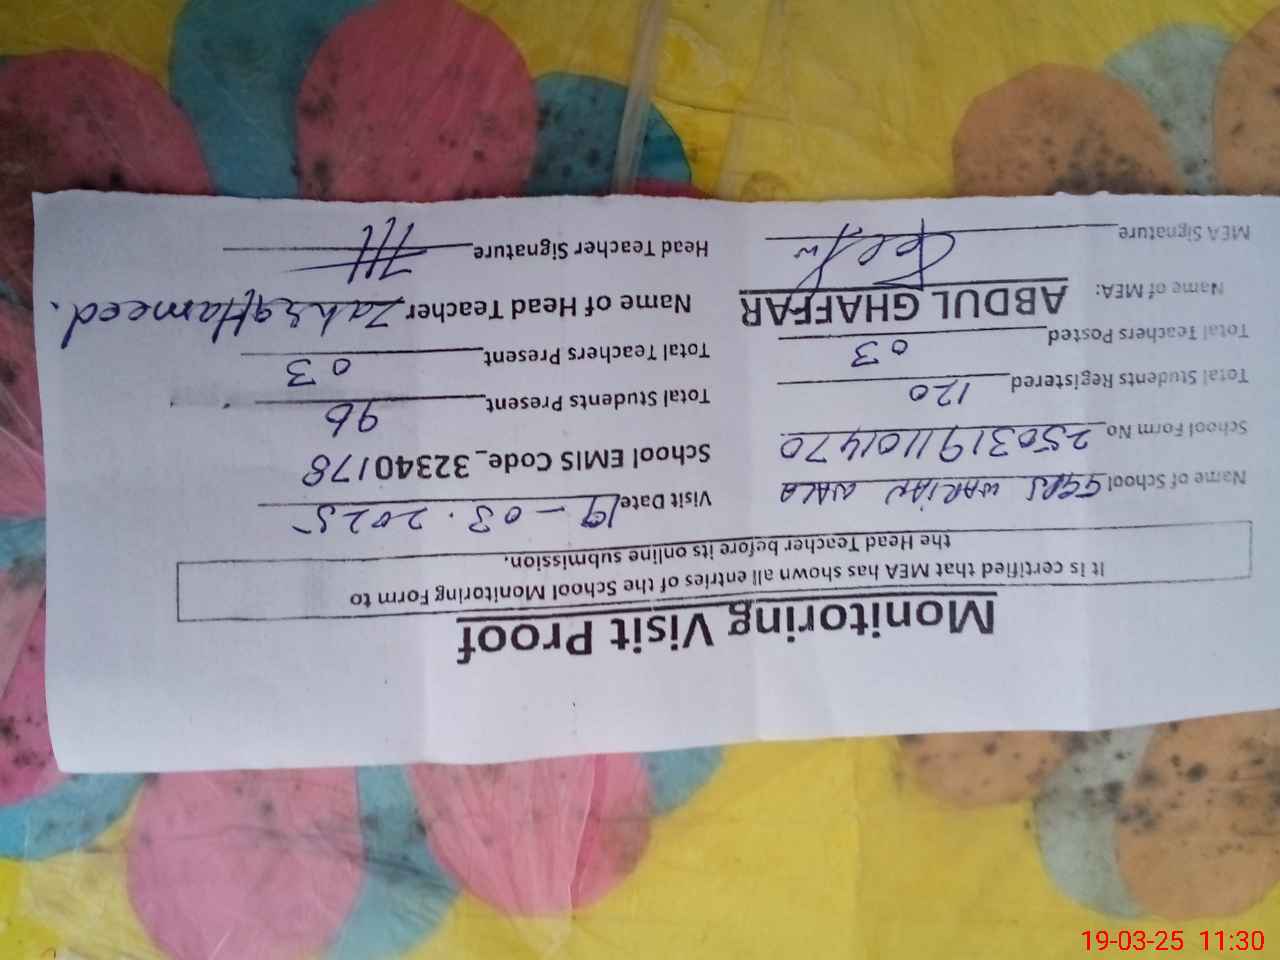 Monitoring Visit Proof
It is certified that MEA has shown all entries of the School Monitoring Form to
the Head Teacher before its online submission.
Name of School GGPS WARIAN WALA Visit Date 19-03.2025
School Form No 250319110 1470 School EMIS Code_32340178
Total Students Registered 120 Total Students Present 96
Total Teachers Posted 03 Total Teachers Present 03
Name of MEA: ABDUL GHAFFAR Name of Head Teacher Zahra Hameed.
MEA Signature Head Teacher Signature
19-03-25 11:30